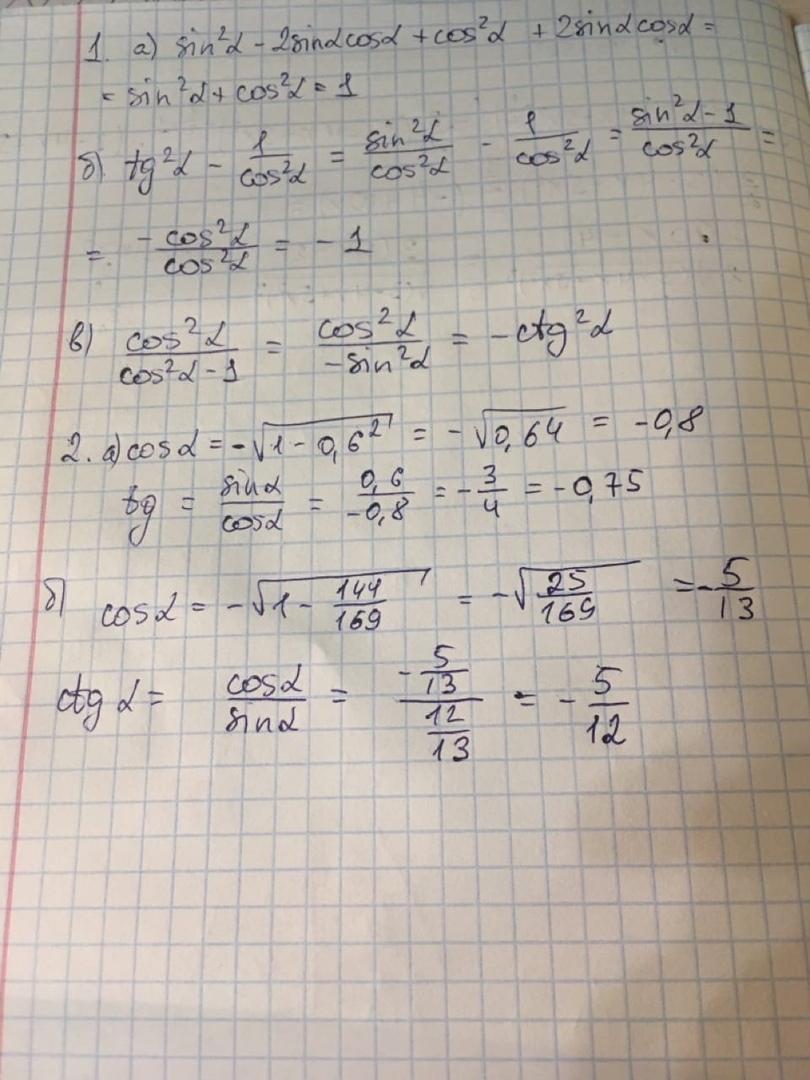 1. а) sin²α - 2sinαcosα + cos²α + 2sinαcosα =
= sin²α + cos²α = 1
б) tg²α - 1/cos²α = sin²α/cos²α - 1/cos²α = (sin²α - 1)/cos²α =
= -cos²α/cos²α = -1
в) cos²α/(cos²α - 1) = cos²α/(-sin²α) = -ctg²α
2. а) cosα = -√(1 - 0,6²) = -√0,64 = -0,8
tg = sinα/cosα = 0,6/-0,8 = -3/4 = -0,75
б) cosα = -√(1 - 144/169) = -√(25/169) = -5/13
ctgα = cosα/sinα = (-5/13)/(12/13) = -5/12